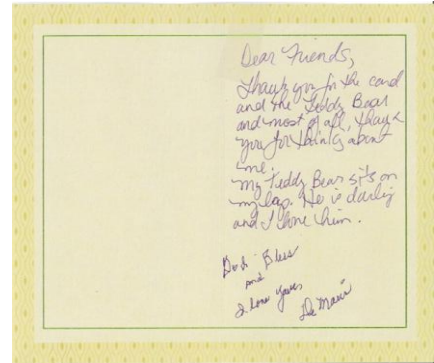 Dear Friends,
Thank you for the card
and the Teddy Bear
and most of all, thank
you for thinking about
me.
My Teddy Bear sits on
my lap. He is darling
and I love him.
God Bless
and
I love you
De Marie